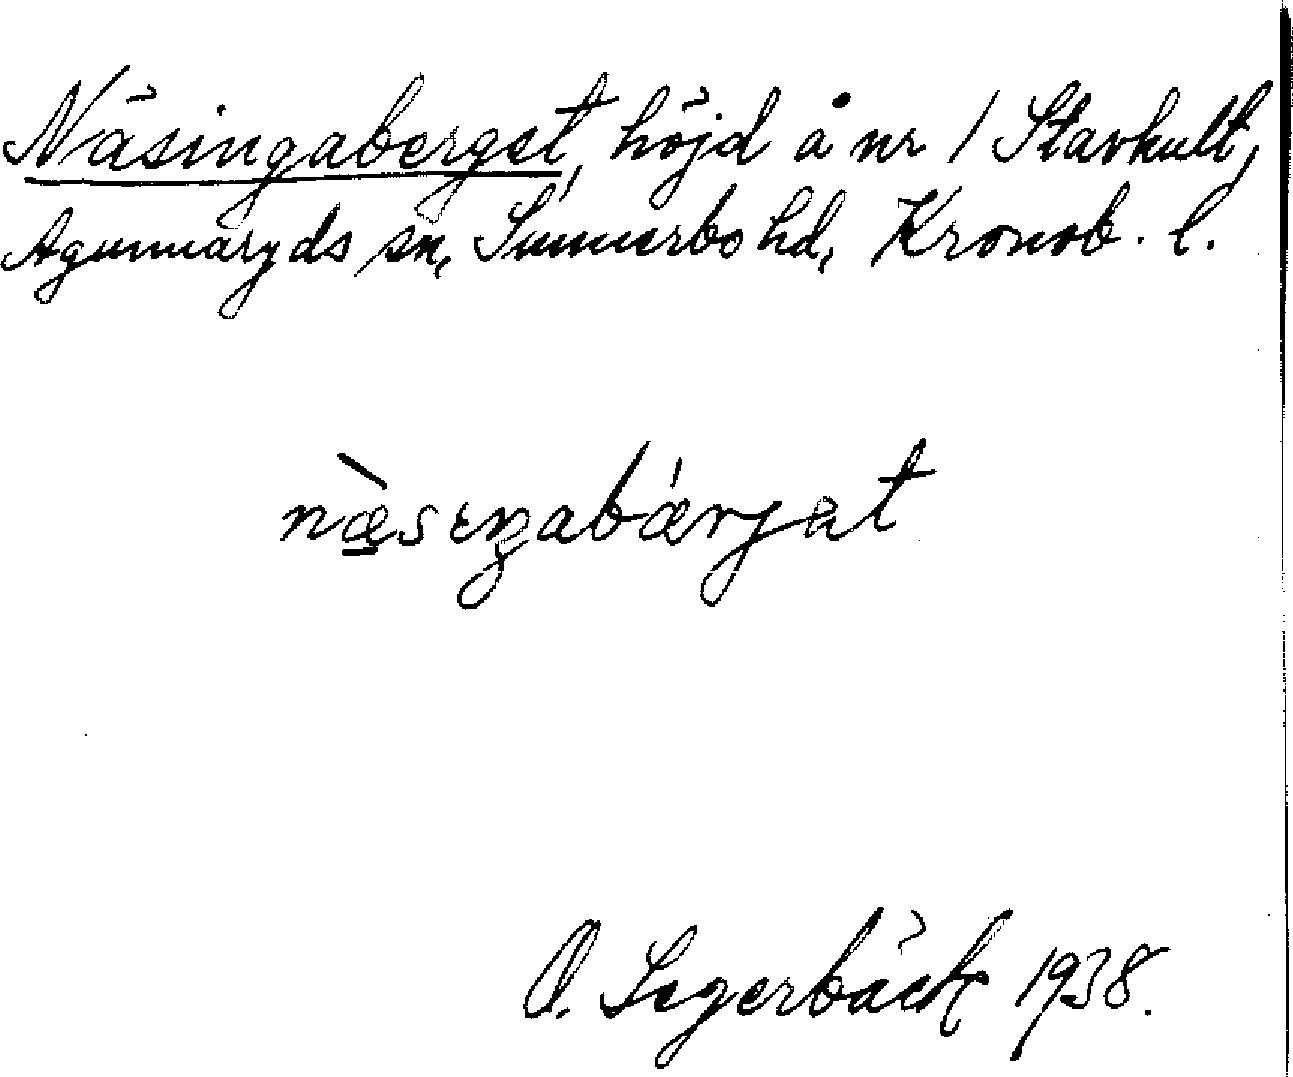 Näsingaberget, höjd å nr 1 Stavhult,
Agunnaryds sn, Sunnerbo hd, Kronob. l.
næ̀sıŋabǽrjat
O. Segerbäck 1938.